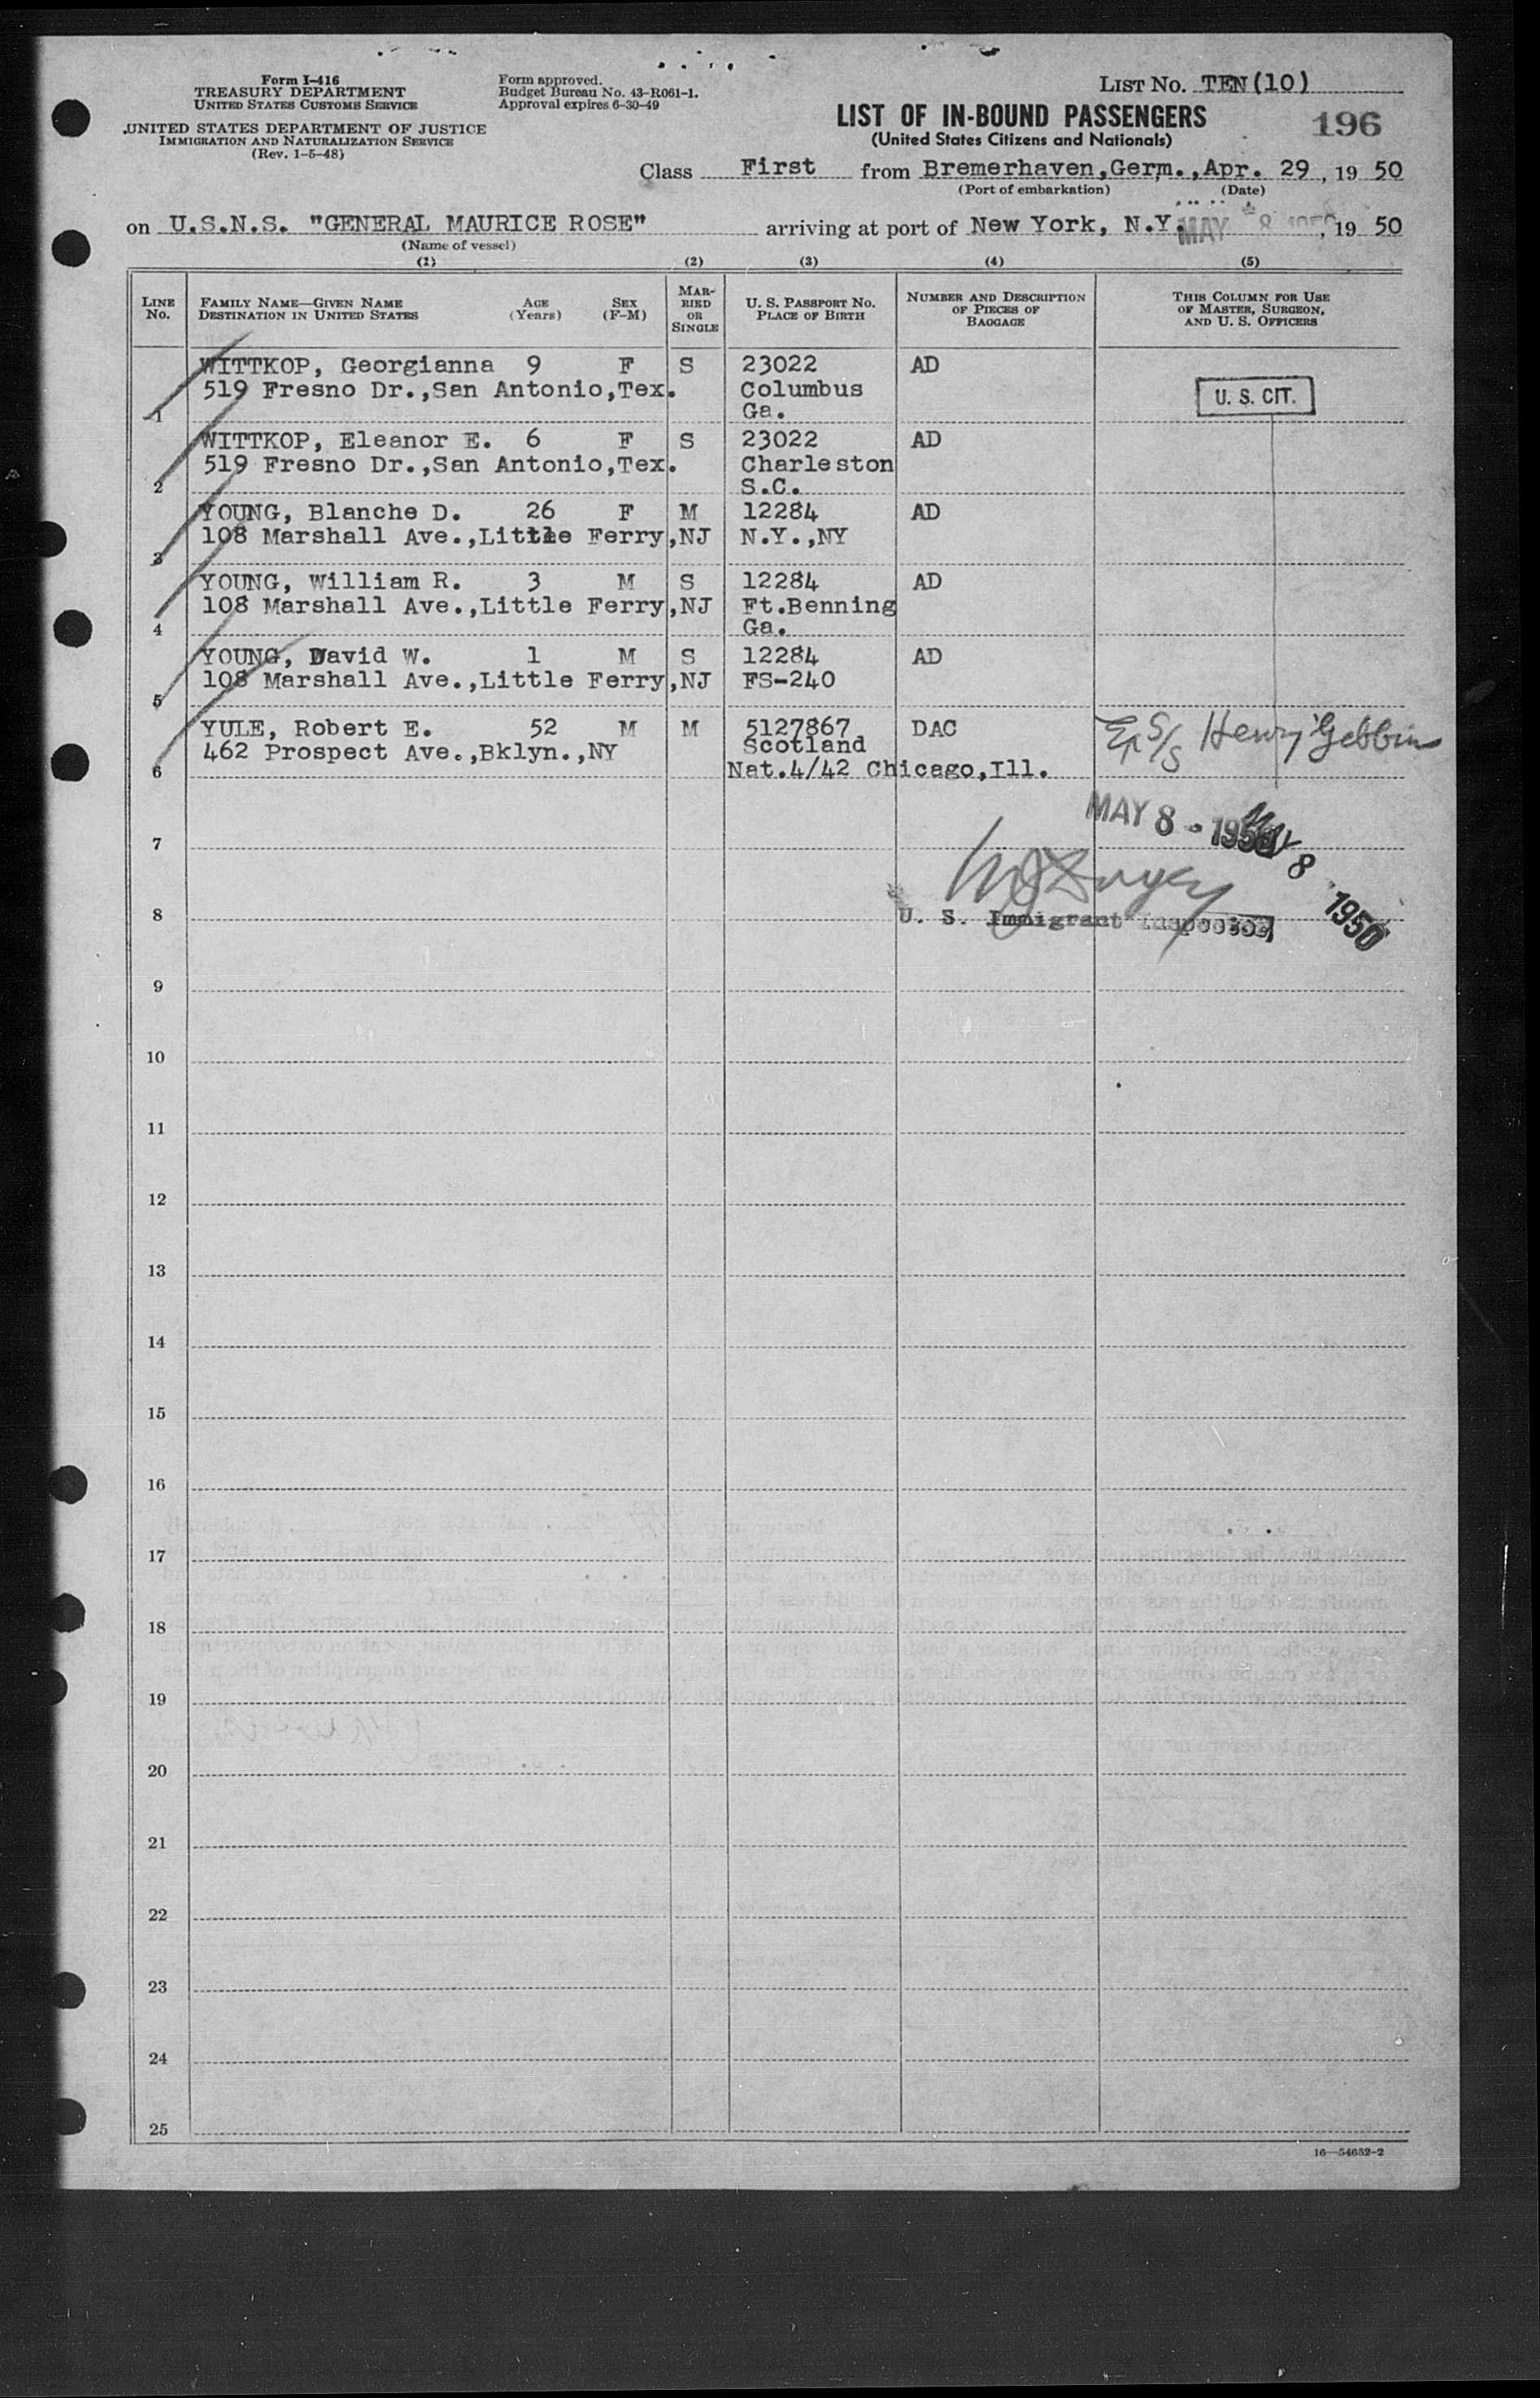 Form I-416
TREASURY DEPARTMENT
UNITED STATES CUSTOMS SERVICE
UNITED STATES DEPARTMENT OF JUSTICE
IMMIGRATION AND NATURALIZATION SERVICE
(Rev. 1-5-48)
Form approved.
Budget Bureau No. 43-R061-1.
Approval expires 6-30-49
LIST NO. TEN(10)
LIST OF IN-BOUND PASSENGERS
(United States Citizens and Nationals)
196
Class First from Bremerhaven,Germ.,Apr. 29, 19 50
(Port of embarkation) (Date)
on U.S.N.S. "GENERAL MAURICE ROSE" arriving at port of New York, N.Y. MAY 8 1950, 19 50
(Name of vessel)
(1) (2) (3) (4) (5)
LINE No.
FAMILY NAME—GIVEN NAME
DESTINATION IN UNITED STATES
AGE (Years)
SEX (F-M)
MARRIED OR SINGLE
U. S. PASSPORT NO.
PLACE OF BIRTH
NUMBER AND DESCRIPTION OF PIECES OF BAGGAGE
THIS COLUMN FOR USE OF MASTER, SURGEON, AND U. S. OFFICERS
WITTKOP, Georgianna 9 F S 23022 AD
519 Fresno Dr.,San Antonio,Tex. Columbus U. S. CIT.
1 Ga.
WITTKOP, Eleanor E. 6 F S 23022 AD
519 Fresno Dr.,San Antonio,Tex. Charleston
2 S.C.
YOUNG, Blanche D. 26 F M 12284 AD
108 Marshall Ave.,Little Ferry,NJ N.Y.,NY
3
YOUNG, William R. 3 M S 12284 AD
108 Marshall Ave.,Little Ferry,NJ Ft.Benning
4 Ga.
YOUNG, David W. 1 M S 12284 AD
108 Marshall Ave.,Little Ferry,NJ FS-240
5
YULE, Robert E. 52 M M 5127867 DAC
S/S Henry Gibbins
462 Prospect Ave.,Bklyn.,NY Scotland
6 Nat.4/42 Chicago,Ill.
MAY 8 - 1950
MAY 8 1950
7
8 U. S. Immigrant Inspector
9
10
11
12
13
14
15
16
17
18
19
20
21
22
23
24
25
16—54652-2